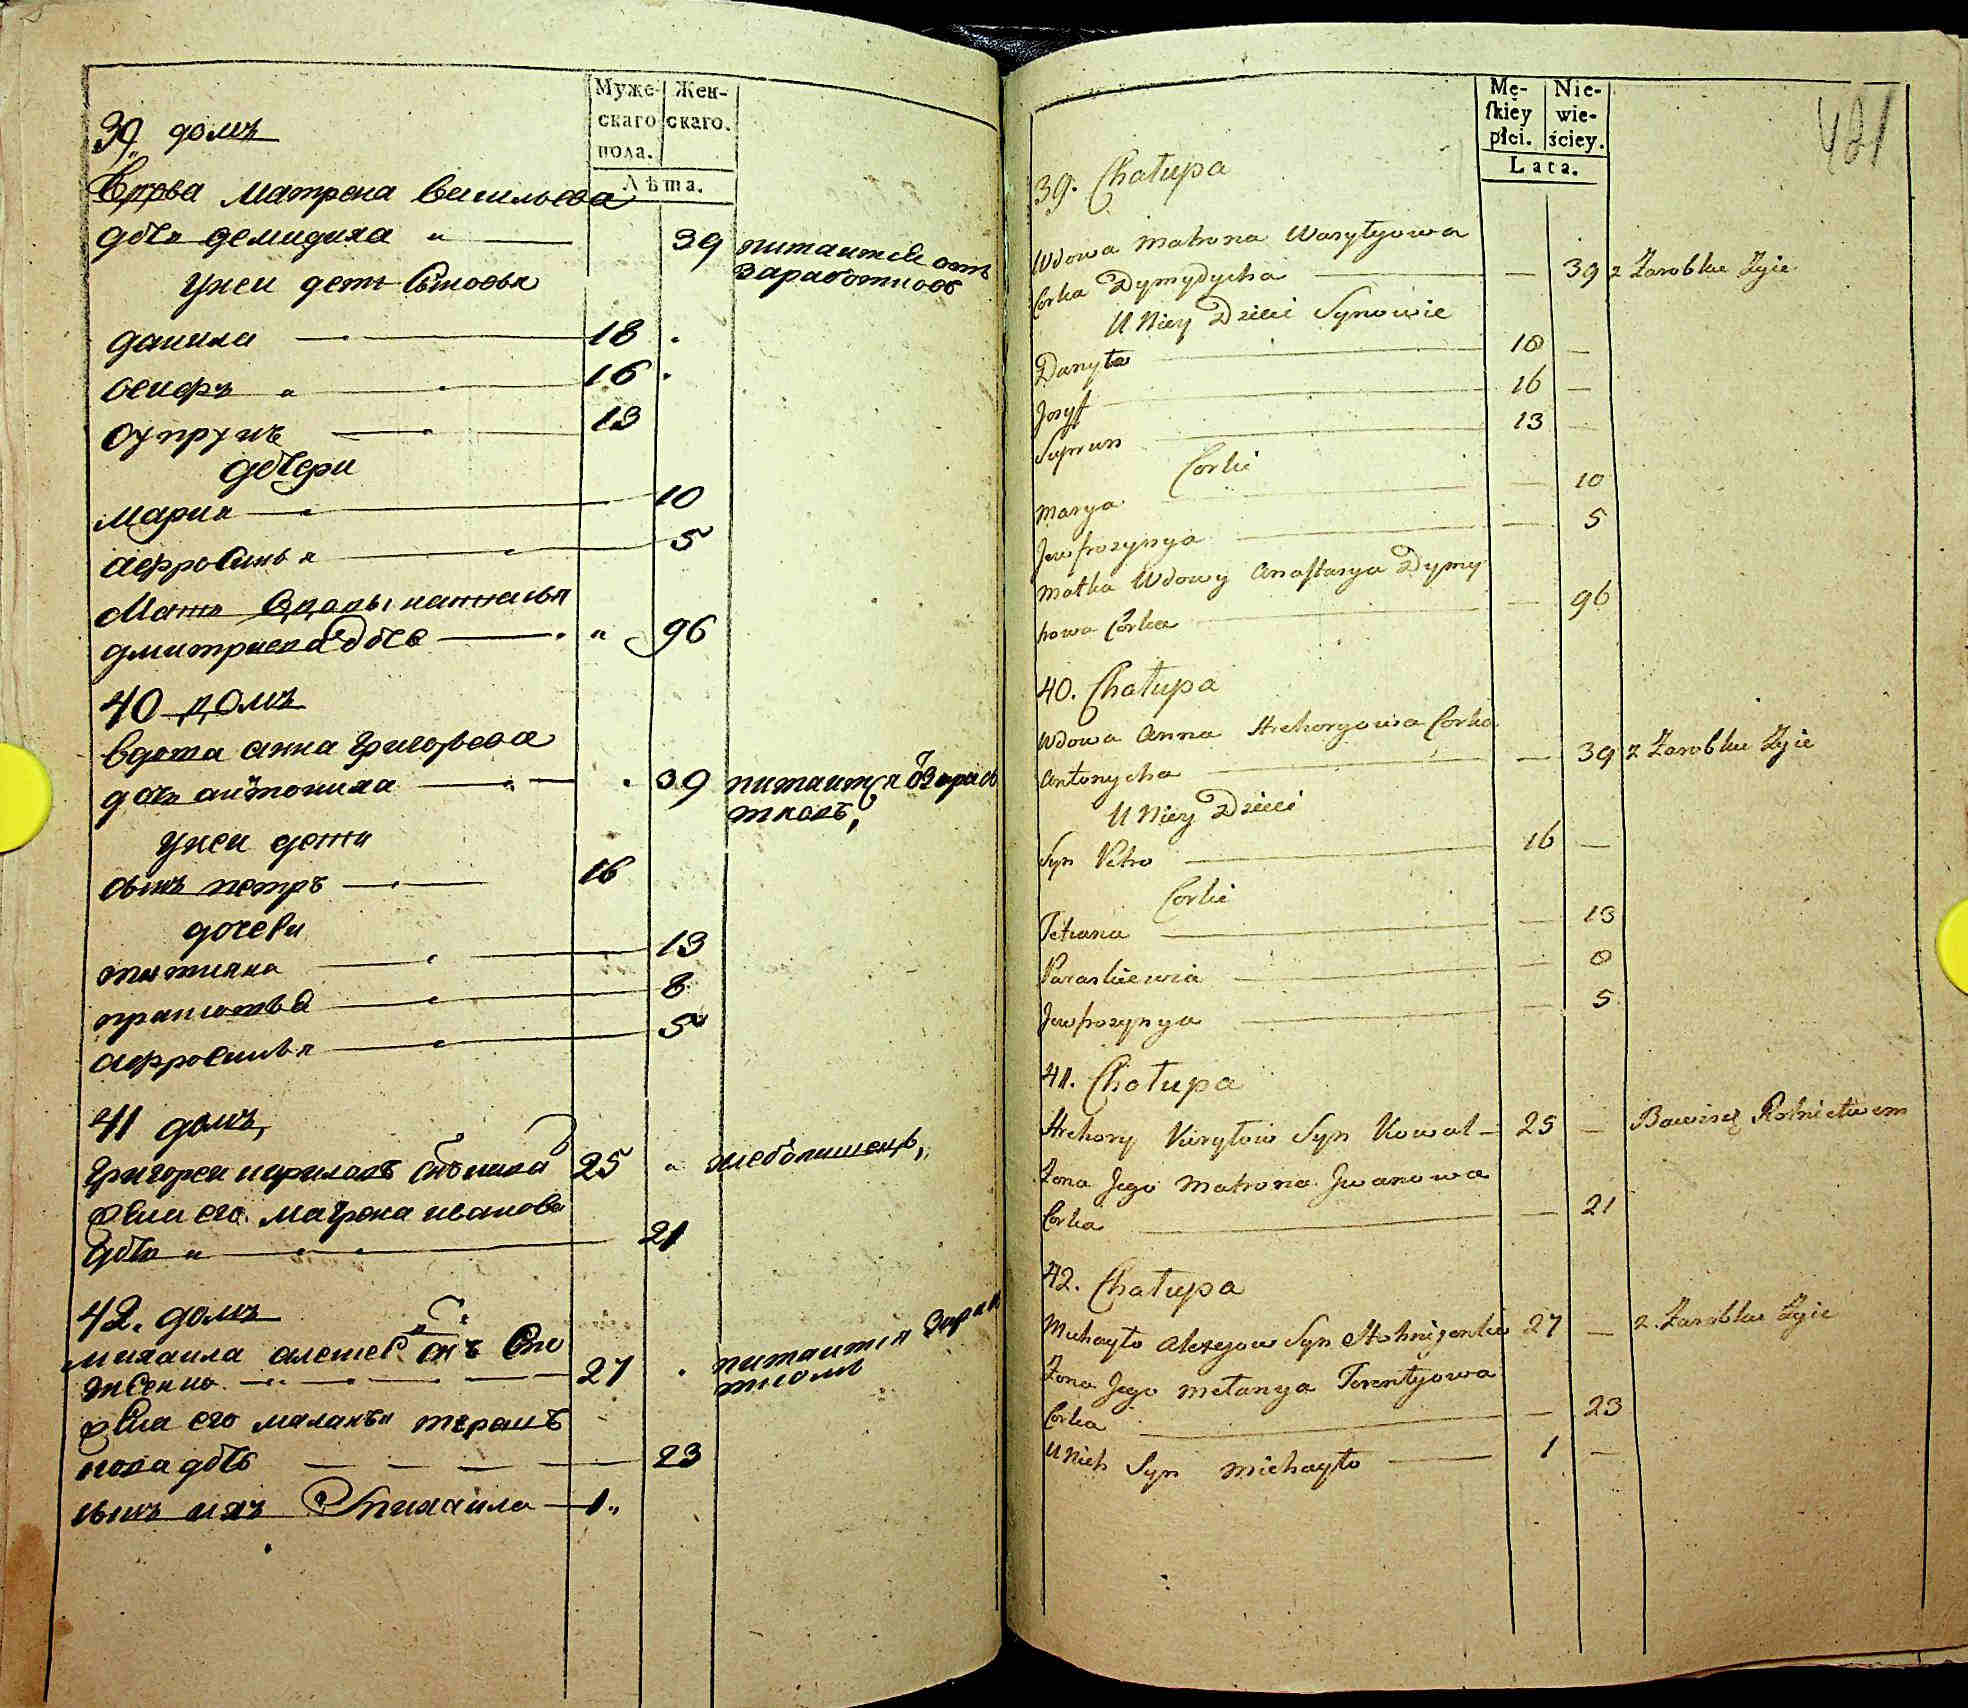 Муже-
скаго
пола.
Жен-
скаго.
Лѣта.
39 домъ
Вдова Матрена Василѣева
дочь демидиха 39 питаится отъ
заработковъ
унеи дети Сыновья
данила 18
осифъ 16
Супрунъ 13
дочери
Мария 10
афросинья 5
Мать Вдовы настасья
дмитриева дочь 96
40 домъ
вдова анна Григорьева
дочь антониха 39 питаится
унеи дети
сынъ петръ 16
дочери
татияна 13
прасковья 8
афросинья 5
41 домъ
Григореи кириловъ 25 хлебопашецъ
жена его Матрена иванова
дочь 21
42. домъ
михаила алексеевъ сынъ Сто
женко 27 питаится
жена его маланья терент
иова дочь 23
сынъ ихъ Михаила 1
421
Mę-
skiey
płci.
Nie-
wie-
ściey.
Lata.
39. Chałupa
Wdowa Matrona Wasylyowa
Corka Dymydycha 39 z Zarobku Zyie
U Niey Dzieci Synowie
Danyło 18
Josyf 16
Suprun 13
Corki
Marya 10
Jewfrozynya 5
Matka Wdowy Anastasya Dymy
Corka 96
40. Chałupa
Wdowa Anna Hrehoryowa Corka
Antonycha 39 z Zarobku Zyie
U Niey Dzieci
Syn Petro 16
Corki
Tetiana 13
Paraskiewia 8
Jewfrozynya 5
41. Chałupa
Hrehory Kiryłow Syn Kowal 25 Bawi się Rolnictwem
Zona Jego Matrona Jwanowa
Corka 21
42. Chałupa
Michayło Alexejow Syn 27 z Zarobku Zyie
Zona Jego Mełanya Terentyowa
Corka 23
U Nich Syn Michayło 1